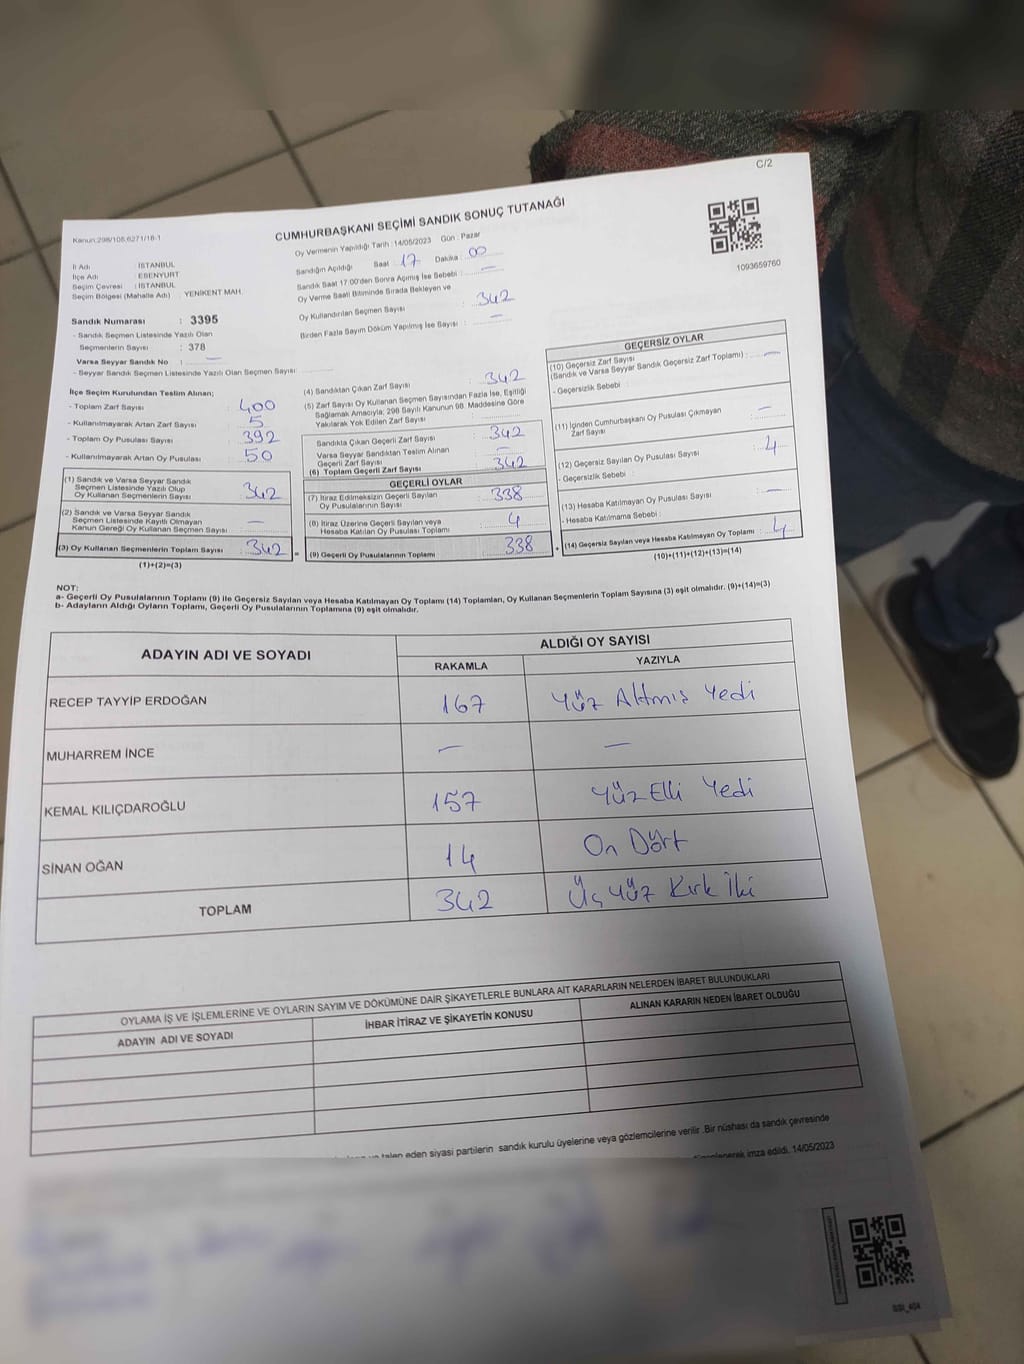 C/2
CUMHURBAŞKANI SEÇİMİ SANDIK SONUÇ TUTANAĞI
Kanun:298/105,6271/16-1
Oy Vermenin Yapıldığı Tarih : 14/05/2023 Gün : Pazar
1093659760
İl Adı : İSTANBUL
İlçe Adı : ESENYURT
Seçim Çevresi : İSTANBUL
Seçim Bölgesi (Mahalle Adı) : YENİKENT MAH.
Sandığın Açıldığı Saat : 17 Dakika : 00
Sandık Saat 17:00'den Sonra Açılmış İse Sebebi : —
Oy Verme Saati Bitiminde Sırada Bekleyen ve
Oy Kullandırılan Seçmen Sayısı : 342
Birden Fazla Sayım Döküm Yapılmış İse Sayısı : —
Sandık Numarası : 3395
- Sandık Seçmen Listesinde Yazılı Olan
Seçmenlerin Sayısı : 378
Varsa Seyyar Sandık No : —
- Seyyar Sandık Seçmen Listesinde Yazılı Olan Seçmen Sayısı:
İlçe Seçim Kurulundan Teslim Alınan;
- Toplam Zarf Sayısı : 400
- Kullanılmayarak Artan Zarf Sayısı : 5
- Toplam Oy Pusulası Sayısı : 392
- Kullanılmayarak Artan Oy Pusulası : 50
(1) Sandık ve Varsa Seyyar Sandık
Seçmen Listesinde Yazılı Olup
Oy Kullanan Seçmenlerin Sayısı : 342
(2) Sandık ve Varsa Seyyar Sandık
Seçmen Listesinde Kayıtlı Olmayan
Kanun Gereği Oy Kullanan Seçmen Sayısı : —
(3) Oy Kullanan Seçmenlerin Toplam Sayısı : 342
(1)+(2)=(3)
(4) Sandıktan Çıkan Zarf Sayısı : 342
(5) Zarf Sayısı Oy Kullanan Seçmen Sayısından Fazla İse, Eşitliği
Sağlamak Amacıyla; 298 Sayılı Kanunun 98. Maddesine Göre
Yakılarak Yok Edilen Zarf Sayısı :
Sandıkta Çıkan Geçerli Zarf Sayısı : 342
Varsa Seyyar Sandıktan Teslim Alınan
Geçerli Zarf Sayısı : —
(6) Toplam Geçerli Zarf Sayısı : 342
GEÇERLİ OYLAR
(7) İtiraz Edilmeksizin Geçerli Sayılan
Oy Pusulalarının Sayısı : 338
(8) İtiraz Üzerine Geçerli Sayılan veya
Hesaba Katılan Oy Pusulası Toplamı : 4
= (9) Geçerli Oy Pusulalarının Toplamı : 338
GEÇERSİZ OYLAR
(10) Geçersiz Zarf Sayısı
(Sandık ve Varsa Seyyar Sandık Geçersiz Zarf Toplamı) : —
- Geçersizlik Sebebi :
(11) İçinden Cumhurbaşkanı Oy Pusulası Çıkmayan
Zarf Sayısı : —
(12) Geçersiz Sayılan Oy Pusulası Sayısı : 4
- Geçersizlik Sebebi :
(13) Hesaba Katılmayan Oy Pusulası Sayısı : —
- Hesaba Katılmama Sebebi :
+ (14) Geçersiz Sayılan veya Hesaba Katılmayan Oy Toplamı : 4
(10)+(11)+(12)+(13)=(14)
NOT:
a- Geçerli Oy Pusulalarının Toplamı (9) ile Geçersiz Sayılan veya Hesaba Katılmayan Oy Toplamı (14) Toplamları, Oy Kullanan Seçmenlerin Toplam Sayısına (3) eşit olmalıdır. (9)+(14)=(3)
b- Adayların Aldığı Oyların Toplamı, Geçerli Oy Pusulalarının Toplamına (9) eşit olmalıdır.
ADAYIN ADI VE SOYADI
ALDIĞI OY SAYISI
RAKAMLA YAZIYLA
RECEP TAYYİP ERDOĞAN 167 Yüz Altmış Yedi
MUHARREM İNCE — —
KEMAL KILIÇDAROĞLU 157 Yüz Elli Yedi
SİNAN OĞAN 14 On Dört
TOPLAM 342 Üç Yüz Kırk İki
OYLAMA İŞ VE İŞLEMLERİNE VE OYLARIN SAYIM VE DÖKÜMÜNE DAİR ŞİKAYETLERLE BUNLARA AİT KARARLARIN NELERDEN İBARET BULUNDUKLARI
ADAYIN ADI VE SOYADI İHBAR İTİRAZ VE ŞİKAYETİN KONUSU ALINAN KARARIN NEDEN İBARET OLDUĞU
talep eden siyasi partilerin sandık kurulu üyelerine veya gözlemcilerine verilir .Bir nüshası da sandık çevresinde
imza edildi. 14/05/2023